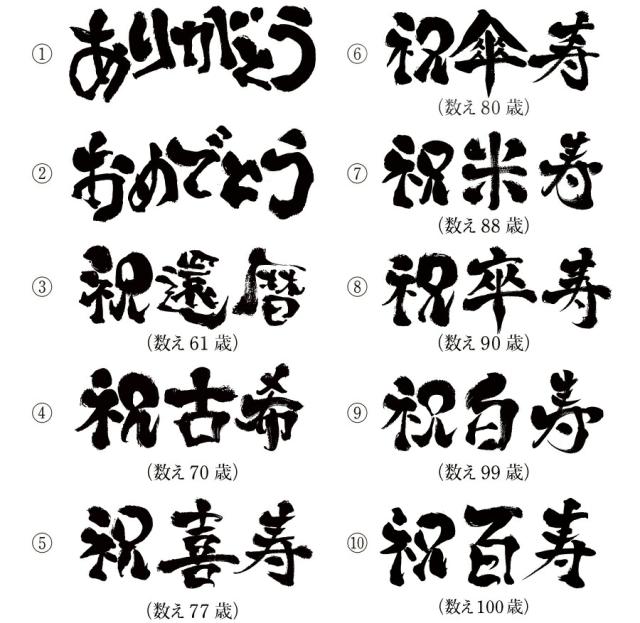 ① ありがとう
② おめでとう
③ 祝還暦
（数え61歳）
④ 祝古希
（数え70歳）
⑤ 祝喜寿
（数え77歳）
⑥ 祝傘寿
（数え80歳）
⑦ 祝米寿
（数え88歳）
⑧ 祝卒寿
（数え90歳）
⑨ 祝白寿
（数え99歳）
⑩ 祝百寿
（数え100歳）